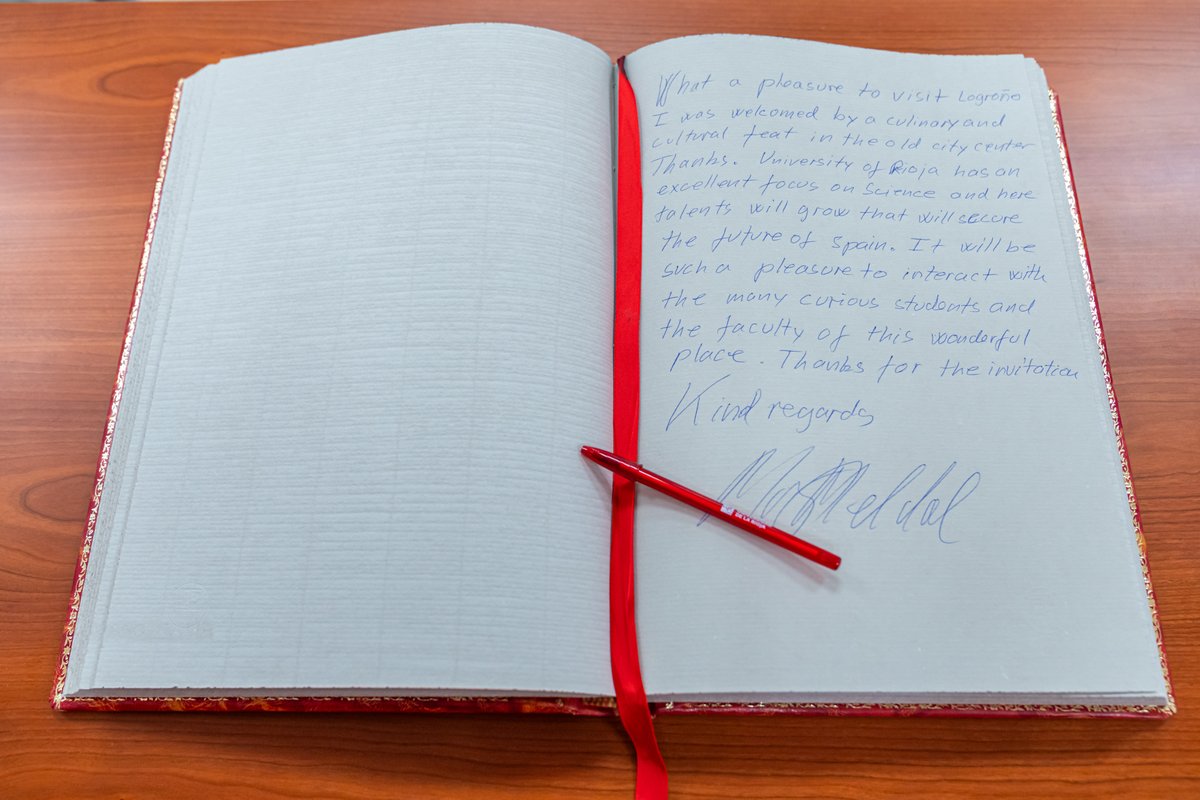 What a pleasure to visit Logroño
I was welcomed by a culinary and
cultural feat in the old city center
Thanks. University of Rioja has an
excellent focus on Science and here
talents will grow that will secure
the future of Spain. It will be
such a pleasure to interact with
the many curious students and
the faculty of this wonderful
place. Thanks for the invitation
Kind regards
Morten Meldal
DE LA RIOJA